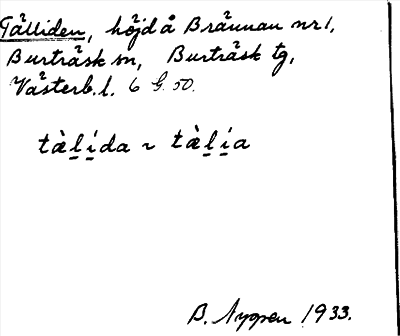 Tälliden, höjd å Brännan nr 1,
Burträsk sn, Burträsk tg,
Västerb. l. 6 G. 50.
tàl̲i̲da ~ tàl̲i̲a
B. Nygren 1933.